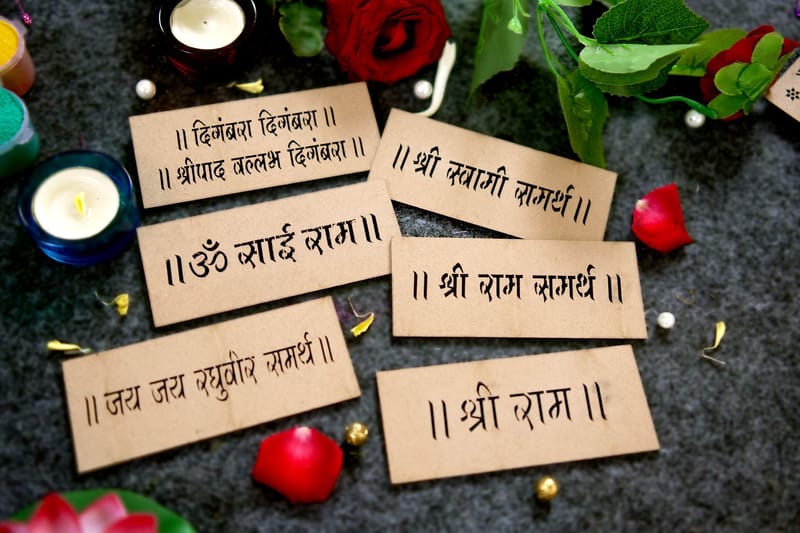 ॥ दिगंबरा दिगंबरा ॥
॥ श्रीपाद वल्लभ दिगंबरा ॥
॥ श्री स्वामी समर्थ ॥
॥ ॐ साई राम ॥
॥ श्री राम समर्थ ॥
॥ जय जय रघुवीर समर्थ ॥
॥ श्री राम ॥